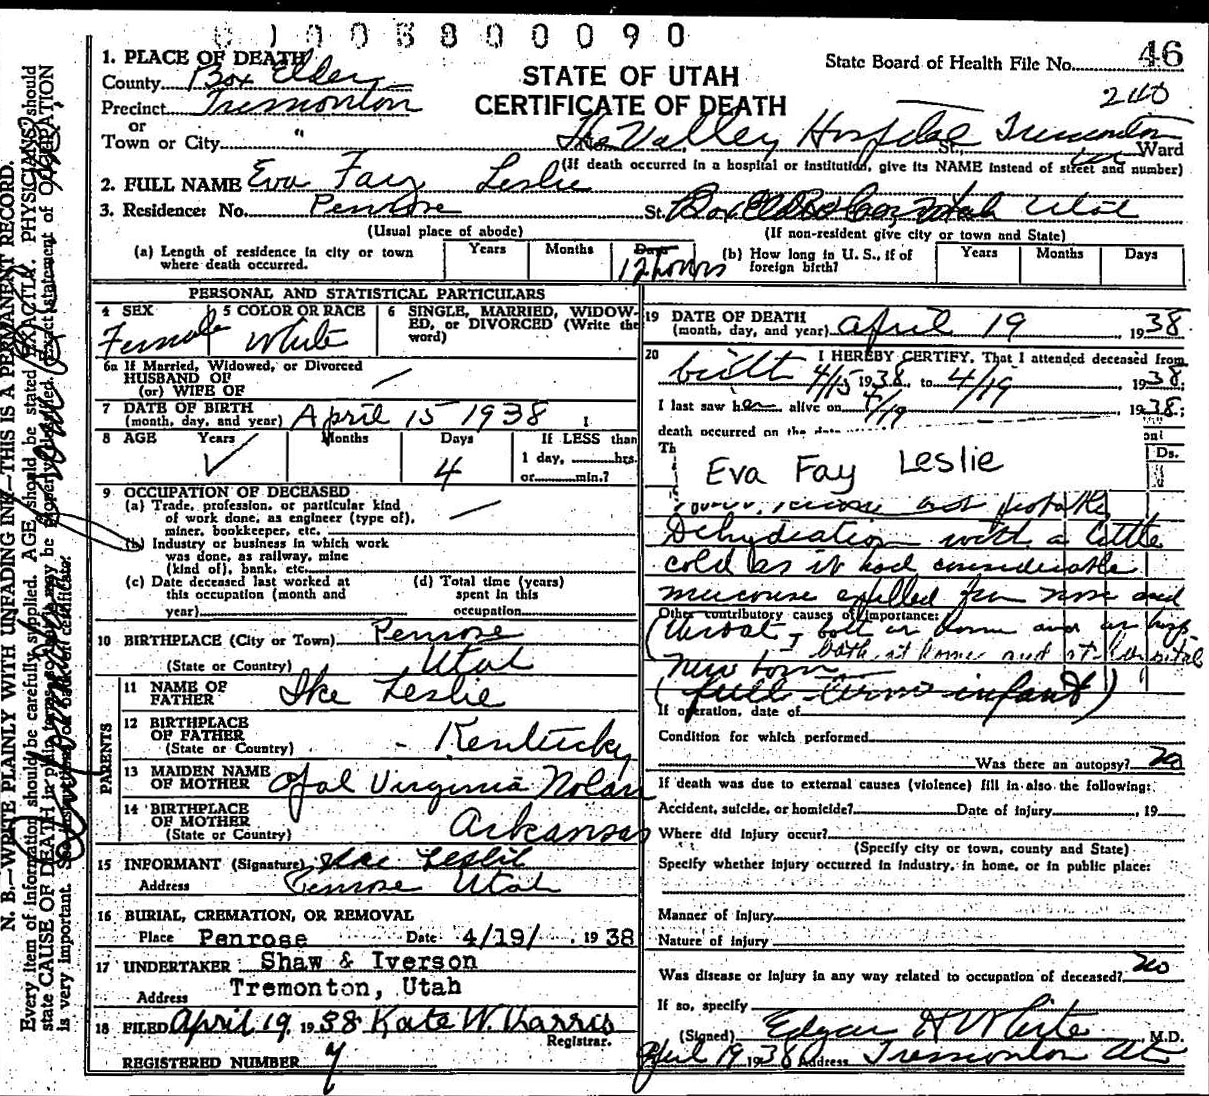 0 1 0 0 5 8 0 0 0 9 0
46
State Board of Health File No.
240
STATE OF UTAH
CERTIFICATE OF DEATH
1. PLACE OF DEATH
County Box Elder
Precinct Tremonton
or
Town or City "
The Valley Hospital Tremonton
St., Ward
(If death occurred in a hospital or institution, give its NAME instead of street and number)
2. FULL NAME Eva Fay Leslie
3. Residence: No. Penrose St. Utah
(Usual place of abode) (If non-resident give city or town and State)
(a) Length of residence in city or town where death occurred. Years Months Days 12 hours
(b) How long in U. S., if of foreign birth? Years Months Days
PERSONAL AND STATISTICAL PARTICULARS
4 SEX Female
5 COLOR OR RACE White
6 SINGLE, MARRIED, WIDOWED, or DIVORCED (Write the word)
6a If Married, Widowed, or Divorced
HUSBAND OF
(or) WIFE OF
7 DATE OF BIRTH
(month, day, and year) April 15 1938
8 AGE Years Months Days 4
If LESS than
1 day, hrs.
or min.?
9 OCCUPATION OF DECEASED
(a) Trade, profession, or particular kind
of work done, as engineer (type of),
miner, bookkeeper, etc.
(b) Industry or business in which work
was done, as railway, mine
(kind of), bank, etc.
(c) Date deceased last worked at
this occupation (month and
year)
(d) Total time (years)
spent in this
occupation
10 BIRTHPLACE (City or Town) Penrose
(State or Country) Utah
PARENTS
11 NAME OF
FATHER Ike Leslie
12 BIRTHPLACE
OF FATHER
(State or Country) Kentucky
13 MAIDEN NAME
OF MOTHER Opal Virginia Nolan
14 BIRTHPLACE
OF MOTHER
(State or Country) Arkansas
15 INFORMANT (Signature) Ike Leslie
Address Penrose Utah
16 BURIAL, CREMATION, OR REMOVAL
Place Penrose Date 4/19/ 1938
17 UNDERTAKER Shaw & Iverson
Address Tremonton, Utah
18 FILED April 19, 1938 Kate W. Harris
Registrar.
REGISTERED NUMBER 7
19 DATE OF DEATH
(month, day, and year) April 19 1938
20 I HEREBY CERTIFY, That I attended deceased from
birth 4/15 1938, to 4/19 1938;
I last saw her alive on 4/19 1938;
death occurred on the date
Th
Ds.
Eva Fay Leslie
probable
Dehydration with a little
cold as it had considerable
mucouse expelled from nose and
Other contributory causes of importance:
throat, both at home and at hosp
both at home and at hospital
new born
(full term infant)
If operation, date of
Condition for which performed
Was there an autopsy? no
If death was due to external causes (violence) fill in also the following:
Accident, suicide, or homicide? Date of injury , 19
Where did injury occur?
(Specify city or town, county and State)
Specify whether injury occurred in industry, in home, or in public place:
Manner of injury
Nature of injury
Was disease or injury in any way related to occupation of deceased? no
If so, specify
(Signed) Edgar H White M.D.
April 19 1938 Address Tremonton Ut
N. B.—WRITE PLAINLY WITH UNFADING INK—THIS IS A PERMANENT RECORD.
Every item of information should be carefully supplied. AGE should be stated EXACTLY. PHYSICIANS should
state CAUSE OF DEATH in plain terms, so that it may be properly classified. Exact statement of OCCUPATION
is very important. See instructions on back of certificate.